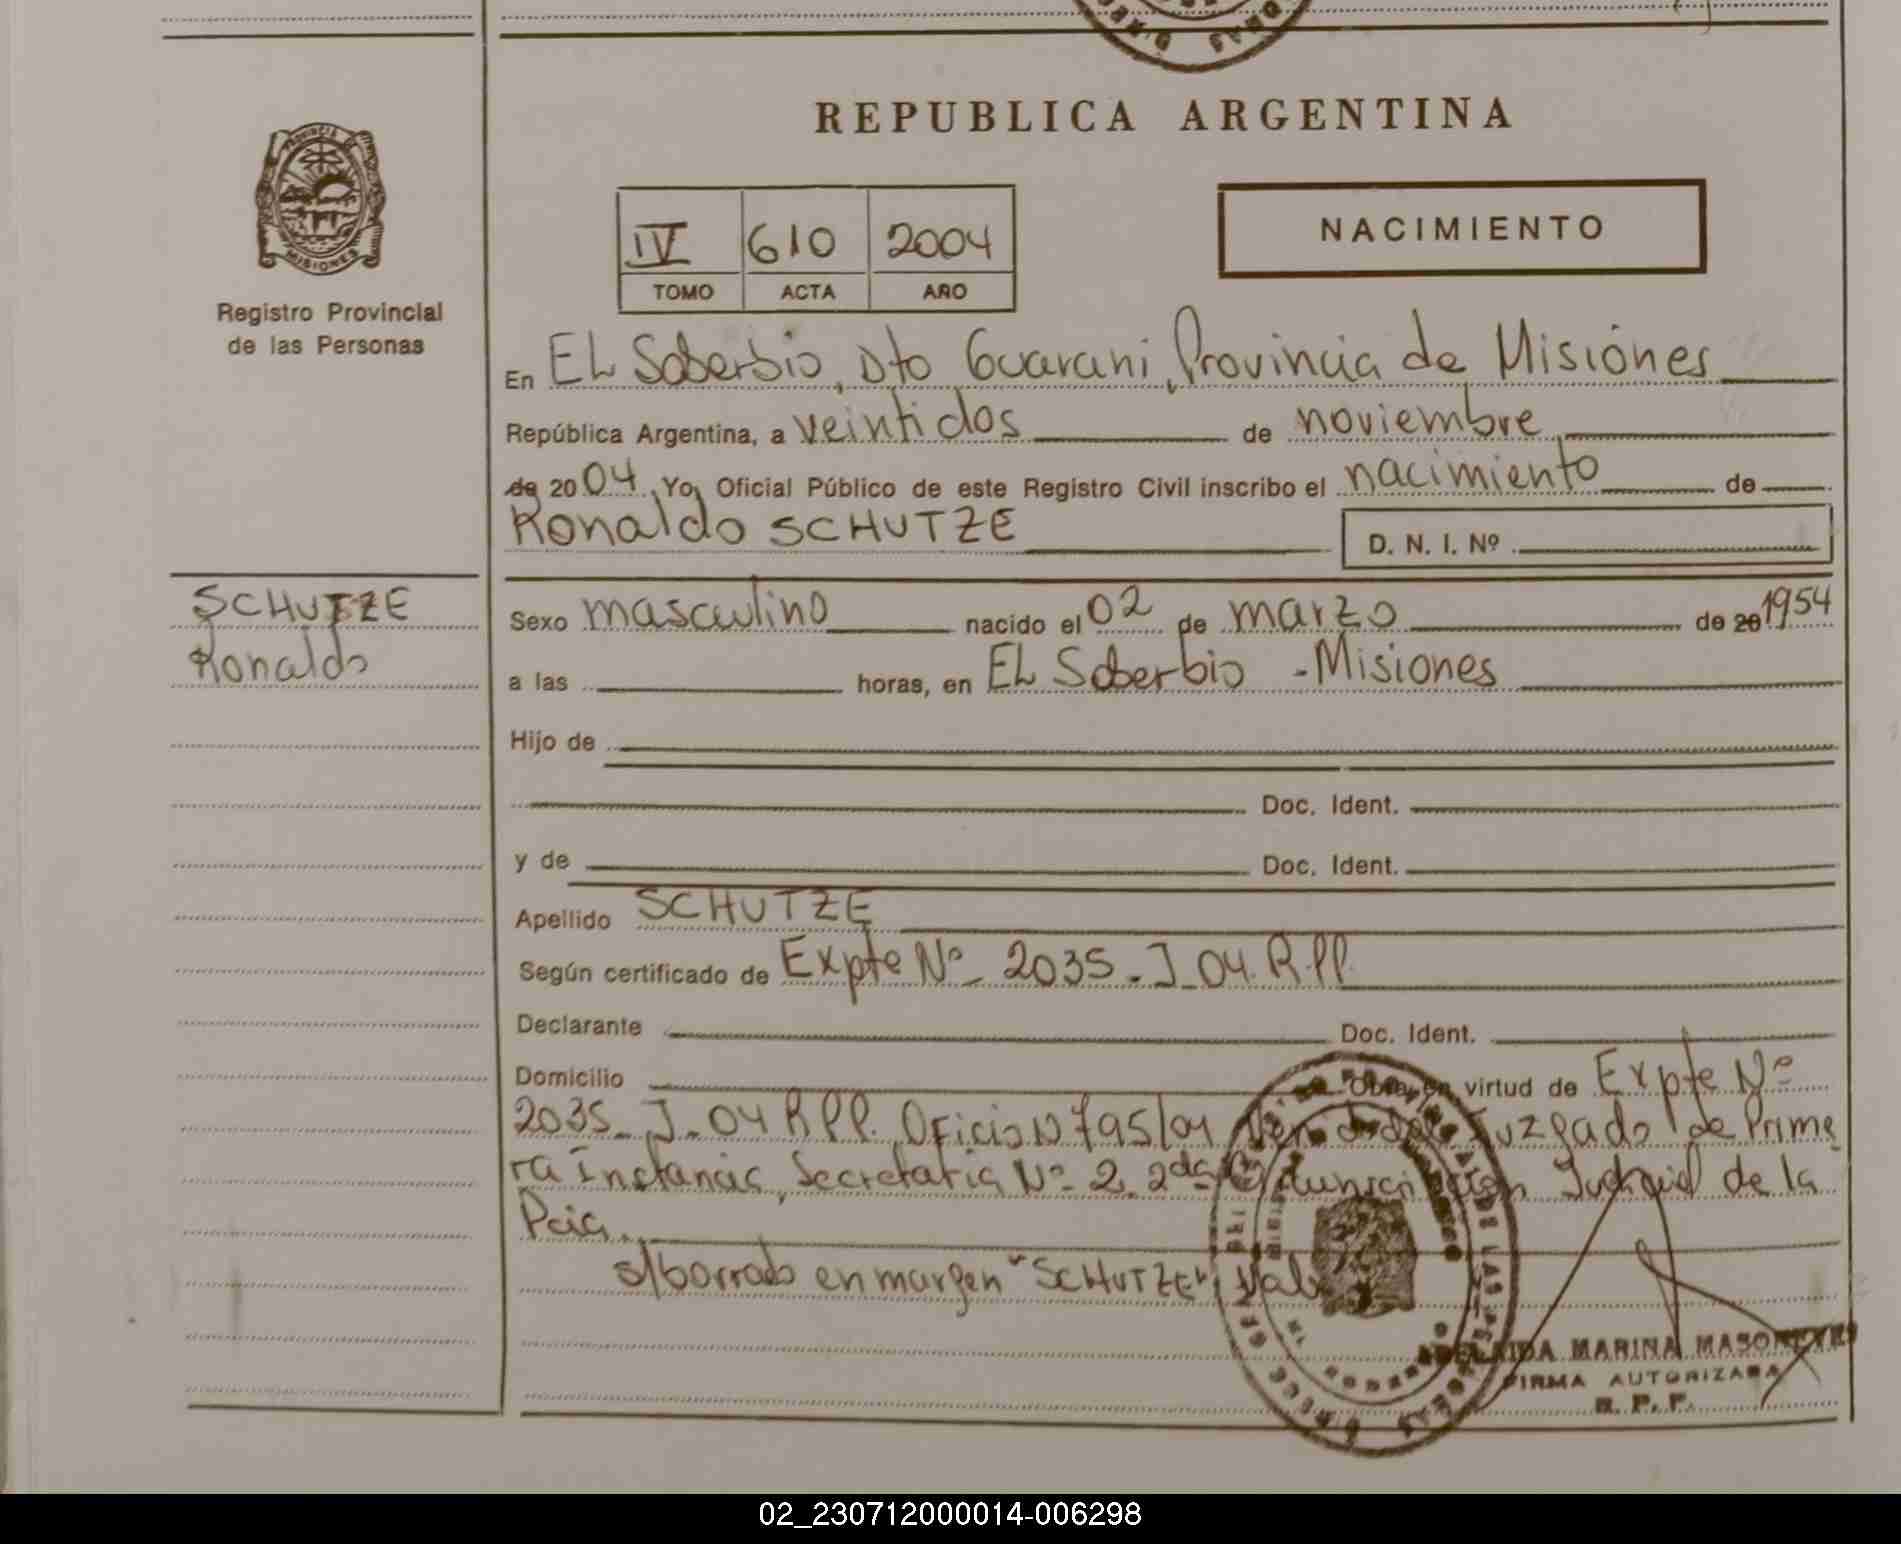 REPUBLICA ARGENTINA
PROVINCIA
MISIONES
Registro Provincial
de las Personas
IV 610 2004
TOMO ACTA AÑO
NACIMIENTO
En EL Soberbio, Dto Guarani, Provincia de Misiones
República Argentina, a veintidos de noviembre
de 2004 Yo, Oficial Público de este Registro Civil inscribo el nacimiento de
Ronaldo SCHUTZE D. N. I. Nº
SCHUTZE
Ronaldo
Sexo masculino nacido el 02 de marzo de 20 1954
a las horas, en EL Soberbio - Misiones
Hijo de
Doc. Ident.
y de Doc. Ident.
Apellido SCHUTZE
Según certificado de Expte Nº 2035-J-04. R.P.P.
Declarante Doc. Ident.
Domicilio Obra en virtud de Expte Nº
2035-J-04 R.P.P. Oficio N 795/04 Juzgado de Prime
ra Instancia, Secretaria Nº 2. 2da Judicial de la
Pcia.
s/borrado en margen "SCHUTZE"; Vale
MARINA
FIRMA AUTORIZADA
R. P. P.
02_230712000014-006298